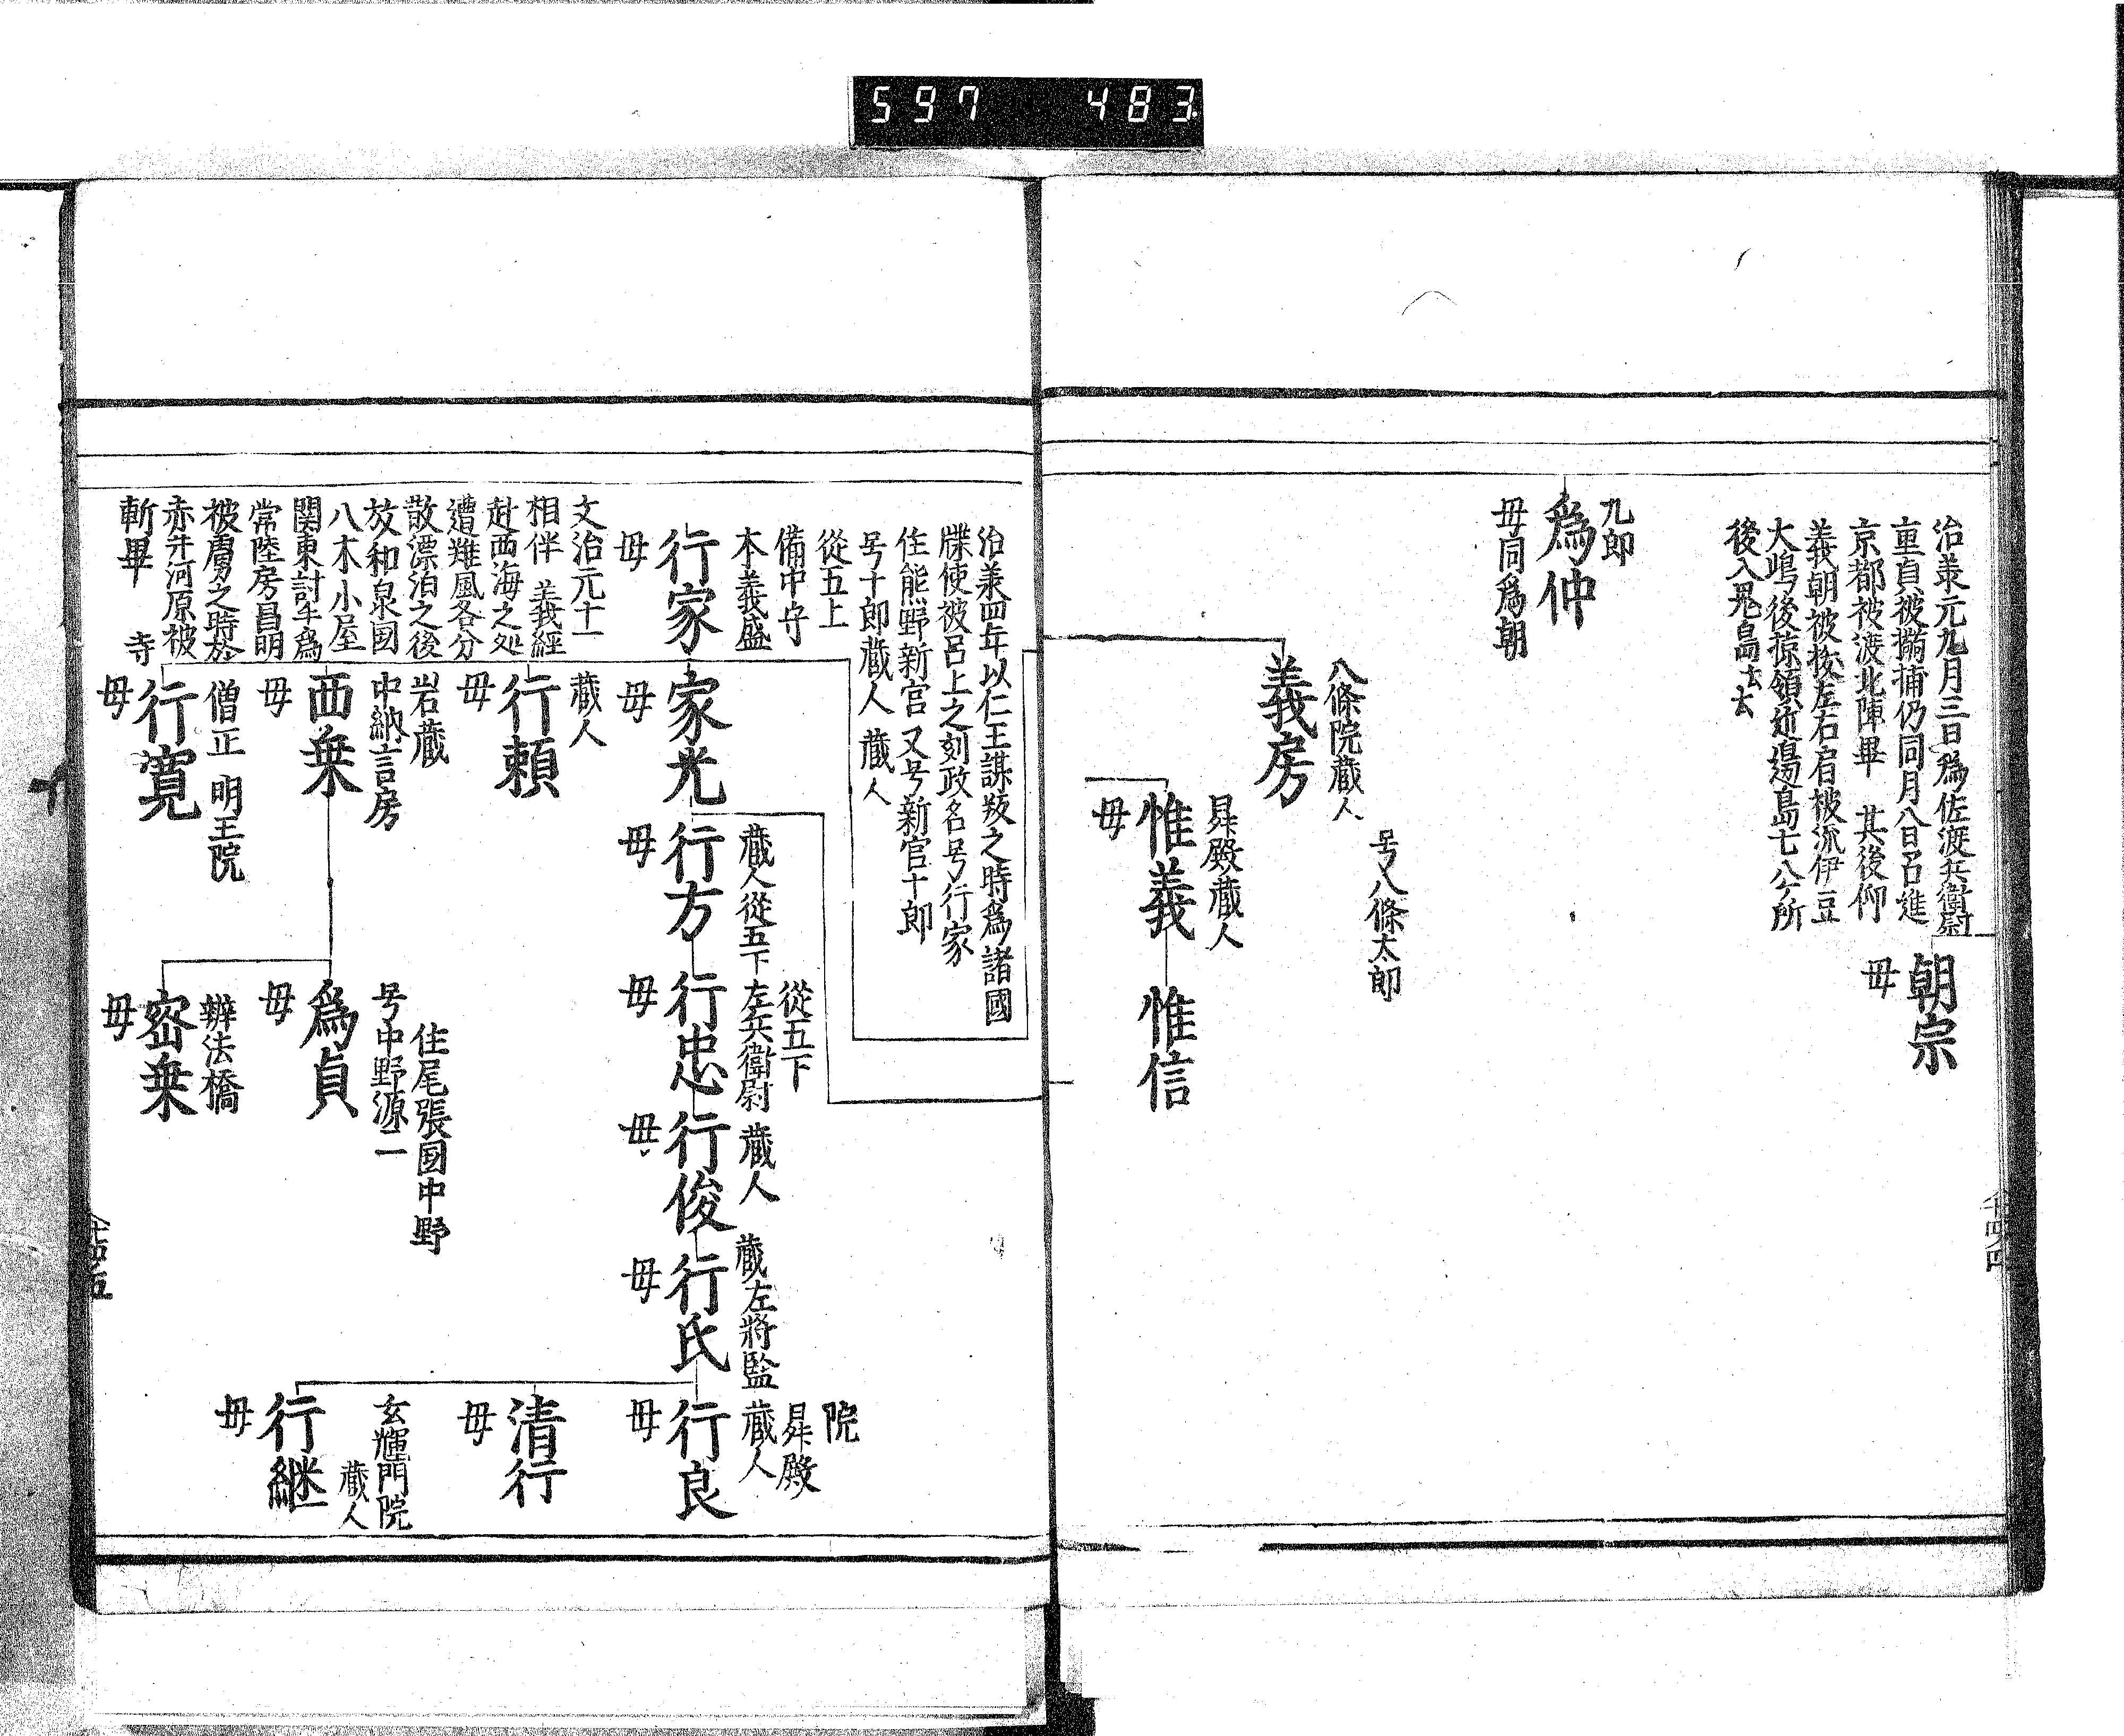 597 483
治兼元九月三日爲佐渡兵衛尉
重貞被搦捕仍同月八日召進
京都被渡北陣畢 其後仰
義朝被抜左右肩被流伊豆
大嶋後掠領近邊島七八ケ所
後入鬼島云云
朝宗
母
九郎
爲仲
母同爲朝
号八條太郎
八條院蔵人
義房
昇殿蔵人
惟義
母
惟信
治兼四年以仁王謀叛之時爲諸國
牒使被召上之刻政名号行家
住熊野新宮 又号新宮十郎
号十郎蔵人 蔵人
從五上
備中守
本義盛
行家
母
文治元十一
相伴 義經
赴西海之処
遭難風各分
散漂泊之後
於和泉國
八木小屋
関東討手爲
常陸房昌明
被虜之時於
赤井河原被
斬畢
家光
母
蔵人從五下
行方
母
從五下
左兵衛尉
行忠
母
蔵人
行俊
母
蔵左将監
行氏
母
院
昇殿
蔵人
行良
母
清行
母
玄輝門院
蔵人
行継
母
蔵人
行頼
母
岩蔵
中納言房
西乗
母
住尾張國中野
号中野源二
爲貞
母
辨法橋
密乗
母
寺
僧正 明王院
行寛
母